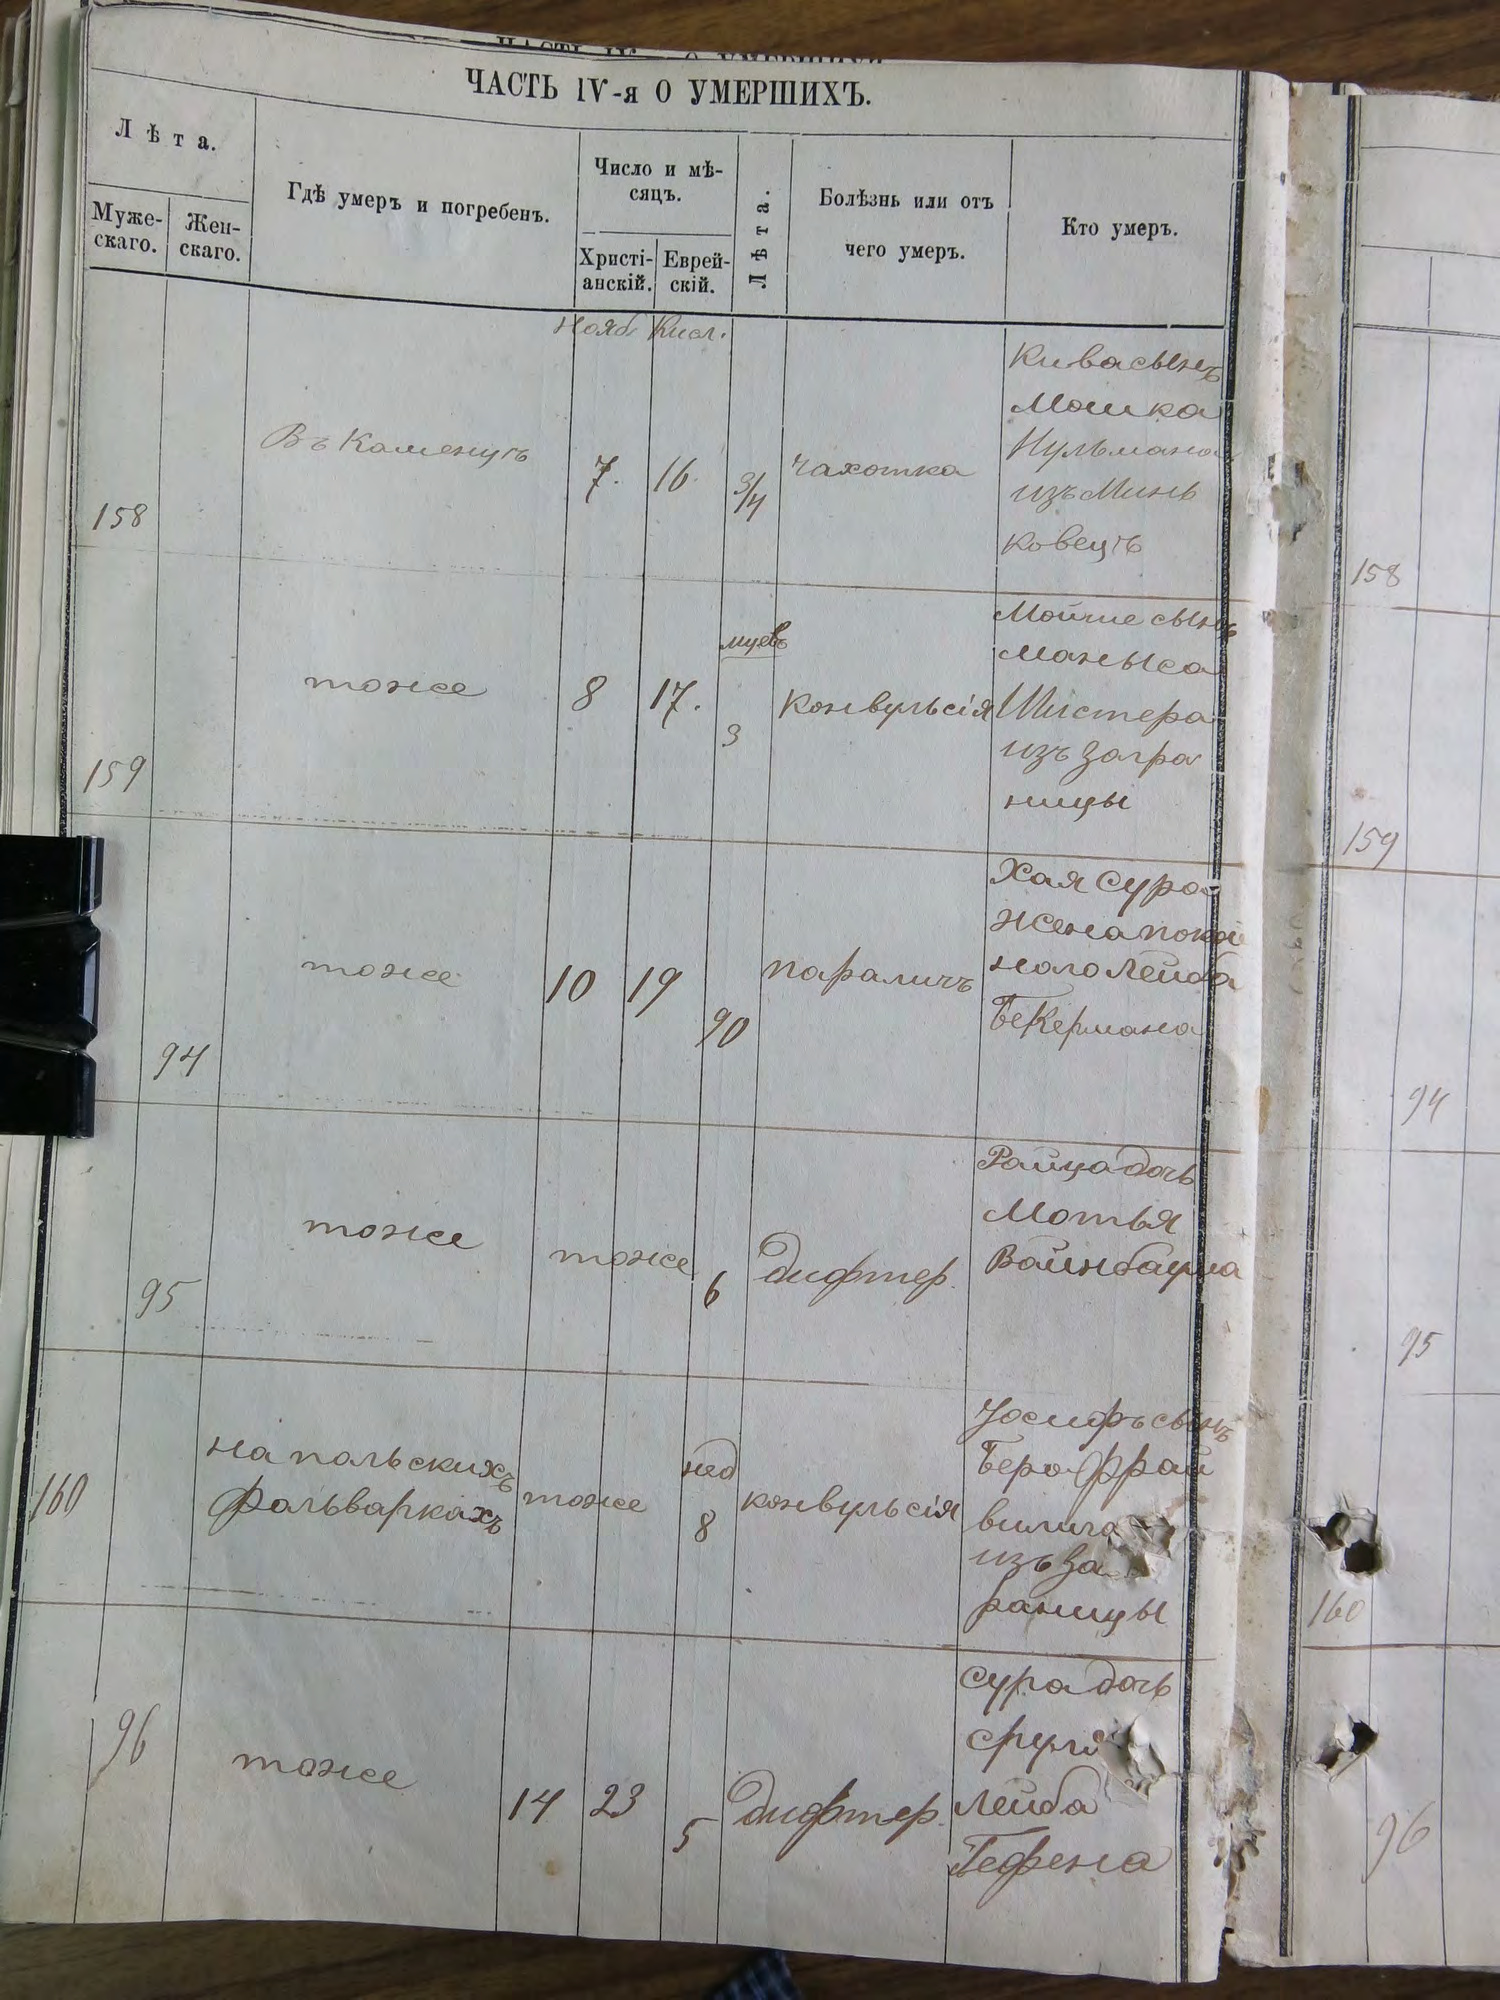 ЧАСТЬ IV-я О УМЕРШИХЪ.
Лѣта.
Муже-
скаго.
Жен-
скаго.
Гдѣ умеръ и погребенъ.
Число и мѣ-
сяцъ.
Христі-
анскій.
Еврей-
скій.
Лѣта.
Болѣзнь или отъ
чего умеръ.
Кто умеръ.
Нояб. Кисл.
158
Въ Каменцѣ
7.
16
3/4
чахотка
Кива сынъ
Мошка
Нульмана
изъ Минь
ковецъ
158
159
тоже
8
17.
мцевъ
3
конвульсія
Мойше сынъ
Маныса
Шистера
изъ загра
ницы
159
94
тоже
10
19
90
параличъ
Хая Сура
жена покой
наго Лейба
Бекермана
94
95
тоже
тоже
6
Дифтер.
Райца дочь
Мотья
Вайнбаума
95
160
на польскихъ
фальваркахъ
тоже
нед
8
конвульсія
Іосифъ сынъ
Бера Фрай
вилига
изъ за
раницы
160
96
тоже
14
23
5
Дифтер.
Сура дочь
Сруль
Лейба
Гефена
96